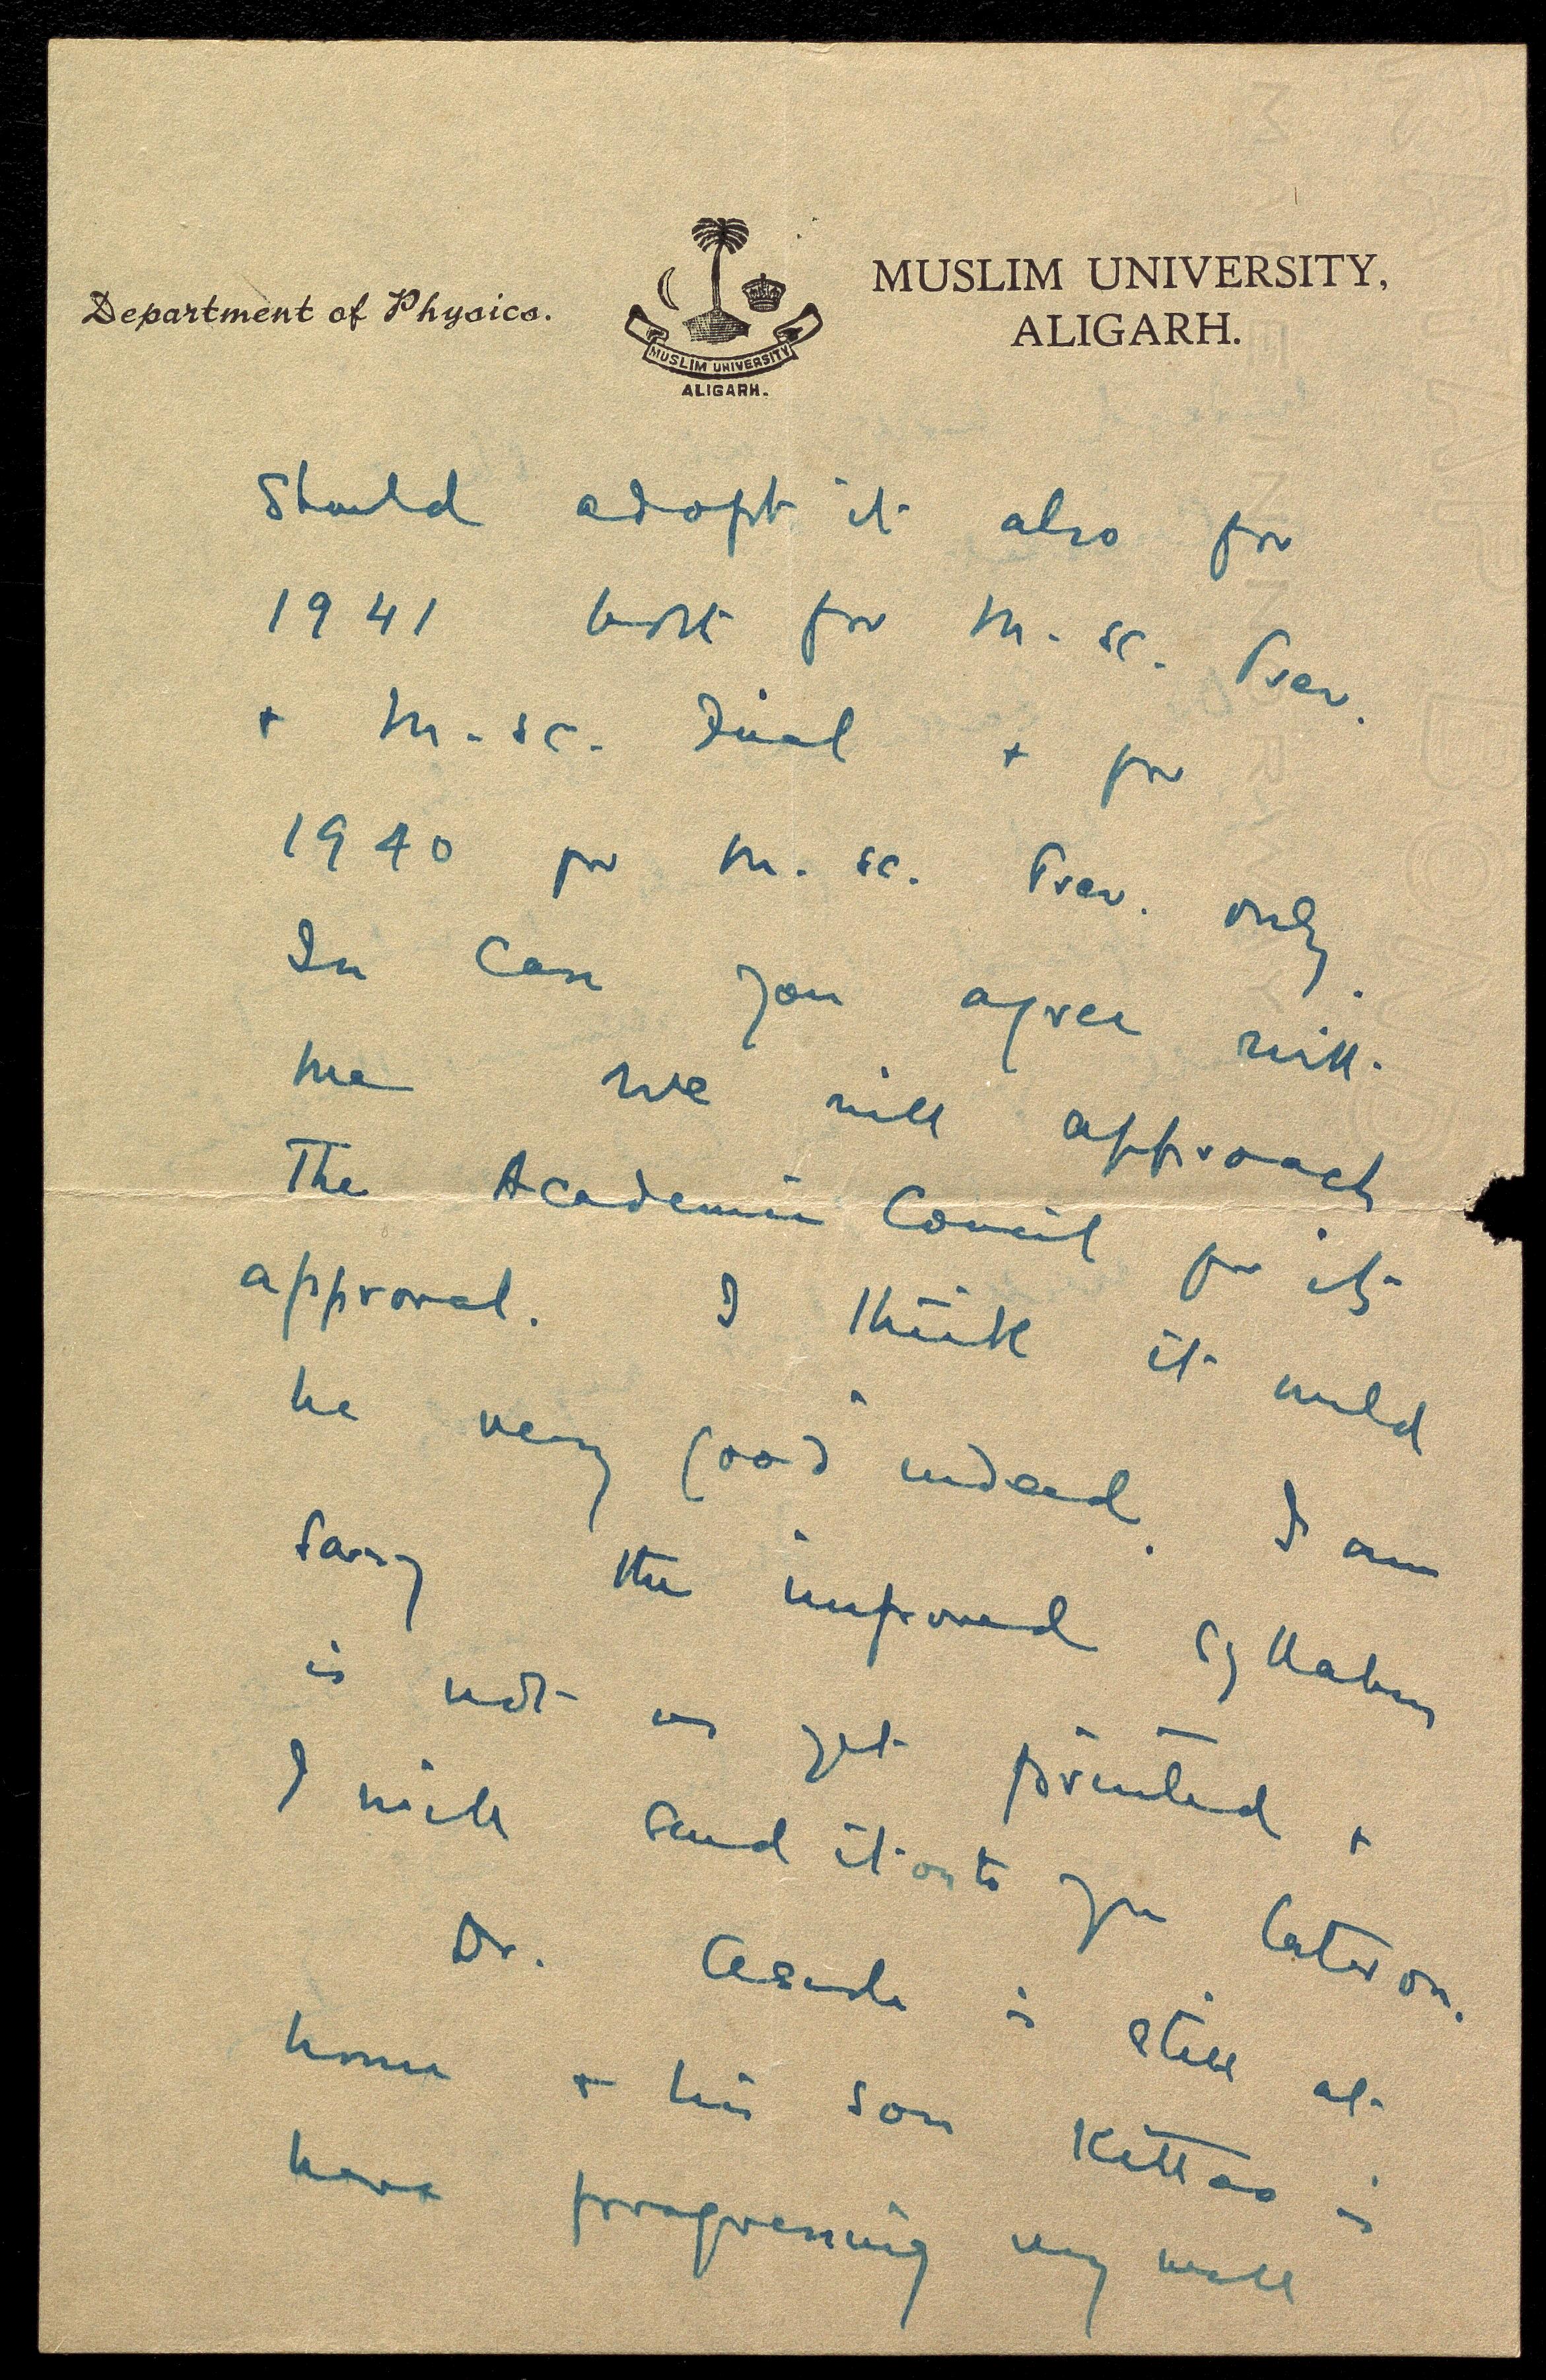 Department of Physics.
MUSLIM UNIVERSITY
ALIGARH.
MUSLIM UNIVERSITY,
ALIGARH.
Should adopt it also for
1941 both for M.Sc. Prev.
+ M.Sc. Final + for
1940 for M.Sc. Prev. only.
In case you agree with
me we will approach
The Academic Council for its
approval. I think it would
be very good indeed. I am
Sorry the improved syllabus
is not as yet printed +
I will send it on to you later on.
Dr. is still at
home + his son is
here progressing very well